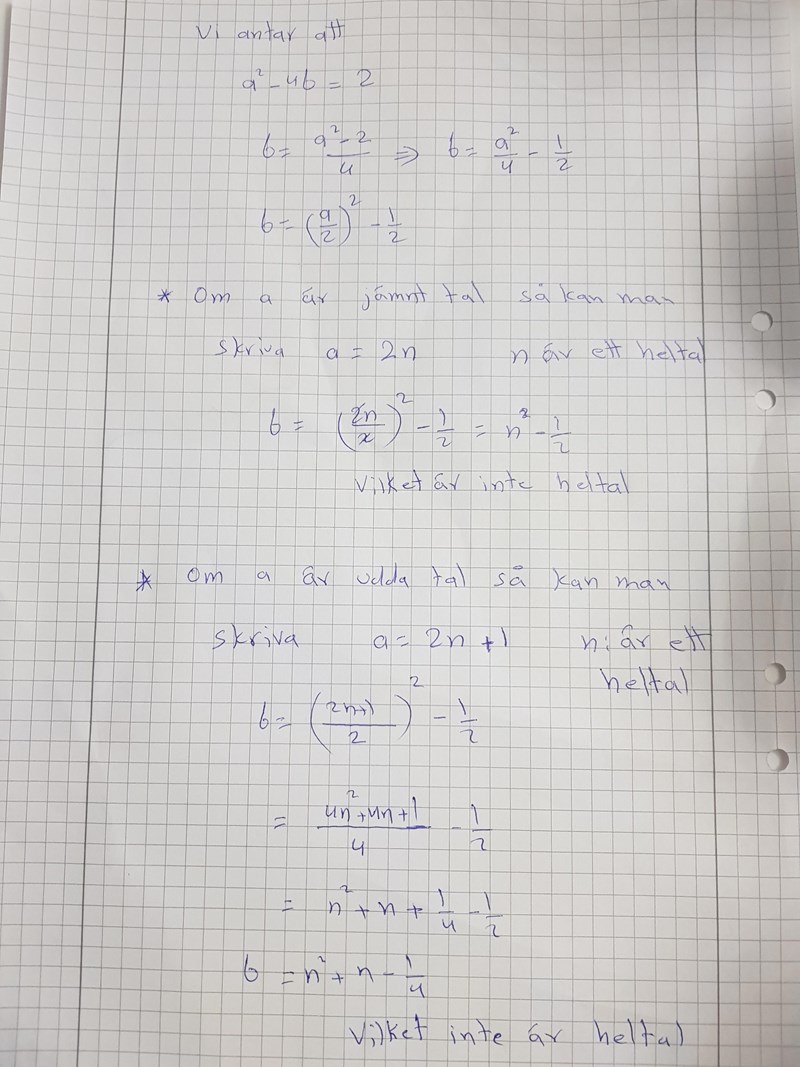 Vi antar att
a² - 4b = 2
b = (a² - 2)/4 ⇒ b = a²/4 - 1/2
b = (a/2)² - 1/2
* Om a är jämnt tal så kan man
skriva a = 2n n är ett heltal
b = (2n/2)² - 1/2 = n² - 1/2
Vilket är inte heltal
* Om a är udda tal så kan man
skriva a = 2n + 1 n: är ett
heltal
b = ((2n+1)/2)² - 1/2
= (4n² + 4n + 1)/4 - 1/2
= n² + n + 1/4 - 1/2
b = n² + n - 1/4
Vilket inte är heltal